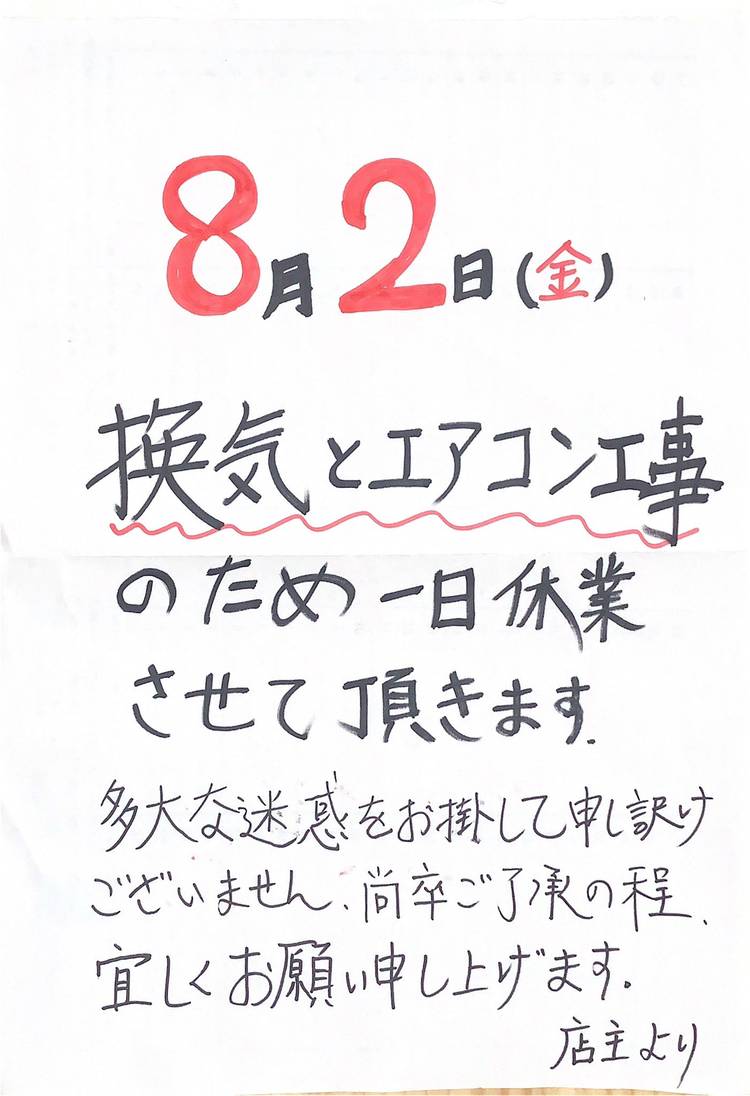 8月2日(金)
換気とエアコン工事
のため一日休業
させて頂きます.
多大な迷惑をお掛して申し訳け
ございません、尚卒ご了承の程、
宜しくお願い申し上げます。
店主より